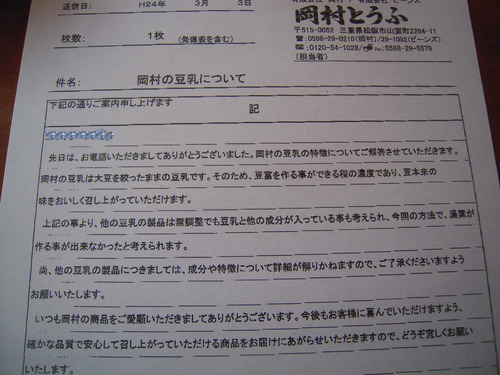 送信日: H24年 3月 3日
岡村とうふ
〒515-0052 三重県松阪市山室町2284-11
☎:0598-29-0210(岡村)/29-1092(ビーンズ)
:0120-54-1028/ :0598-29-5579
(担当者)
枚数: 1枚 (発信表を含む)
件名: 岡村の豆乳について
下記の通りご案内申し上げます
記
先日は、お電話いただきましてありがとうございました。岡村の豆乳の特徴についてご解答させていただきます。
岡村の豆乳は大豆を絞ったままの豆乳です。そのため、豆富を作る事ができる程の濃度であり、豆本来の
味をおいしく召し上がっていただけます。
上記の事より、他の豆乳の製品は無調整でも豆乳と他の成分が入っている事も考えられ、今回の方法で、湯葉が
作る事が出来なかったと考えられます。
尚、他の豆乳の製品につきましては、成分や特徴について詳細が解りかねますので、ご了承くださいますよう
お願いいたします。
いつも岡村の商品をご愛願いただきましてありがとうございます。今後もお客様に喜んでいただけますよう、
確かな品質で安心して召し上がっていただける商品をお届けにあがらせいただきますので、どうぞ宜しくお願い
いたします。